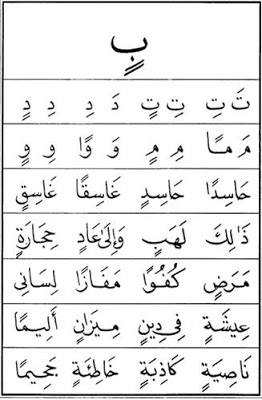 بٍ
تَ تِ تِ تٍ دَ دِ دِ دٍ
مَ مًا مِ مٍ وَ وًا وِ وٍ
حَاسِدًا حَاسِدٍ غَاسِقًا غَاسِقٍ
ذٰلِكَ لَهَبٍ وَإِلٰى عَادٍ حِجَارَةٍ
مَرَضٍ كُفُوًا مَفَازًا لِسَانِى
عِيشَةٍ فِى دِينٍ مِيزَانٍ أَلِيمًا
نَاصِيَةٍ كَاذِبَةٍ خَاطِئَةٍ جَحِيمًا